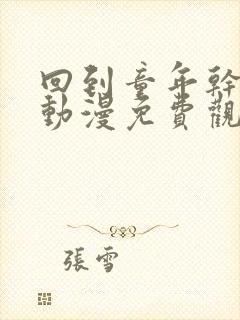 回到童年幹
動漫免費觀
張雪